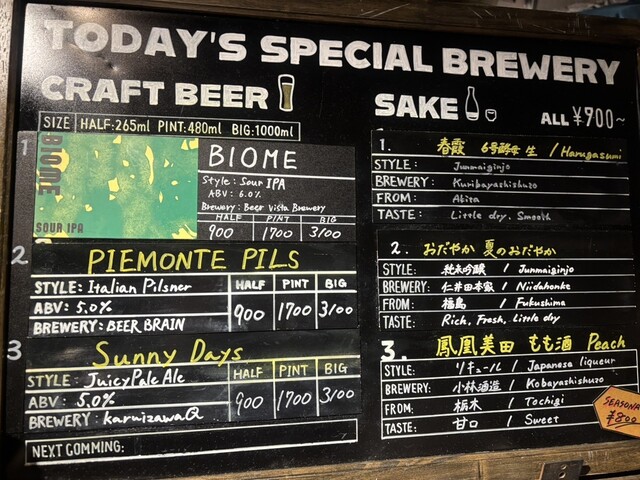 TODAY'S SPECIAL BREWERY
CRAFT BEER
SIZE HALF:265ml PINT:480ml BIG:1000ml
1
BIOME
SOUR IPA
BIOME
Style: Sour IPA
ABV: 6.0%
Brewery: Beer Vista Brewery
HALF PINT BIG
900 1700 3100
2
PIEMONTE PILS
STYLE: Italian Pilsner
ABV: 5.0%
BREWERY: BEER BRAIN
HALF PINT BIG
900 1700 3100
3
Sunny Days
STYLE: Juicy Pale Ale
ABV: 5.0%
BREWERY: karuizawa Q
HALF PINT BIG
900 1700 3100
NEXT COMMING:
SAKE ALL ¥700~
1. 春霞 6号酵母 生 / Harugasumi
STYLE: Junmaiginjo
BREWERY: Kuribayashishuzo
FROM: Akita
TASTE: Little dry. Smooth
2. おだやか 夏のおだやか
STYLE: 純米吟醸 / Junmaiginjo
BREWERY: 仁井田本家 / Niidahonke
FROM: 福島 / Fukushima
TASTE: Rich, Fresh, Little dry
3. 鳳凰美田 もも酒 Peach
STYLE: リキュール / Japanese liqueur
BREWERY: 小林酒造 / Kobayashishuzo
FROM: 栃木 / Tochigi
TASTE: 甘口 / Sweet
SEASONA
¥800